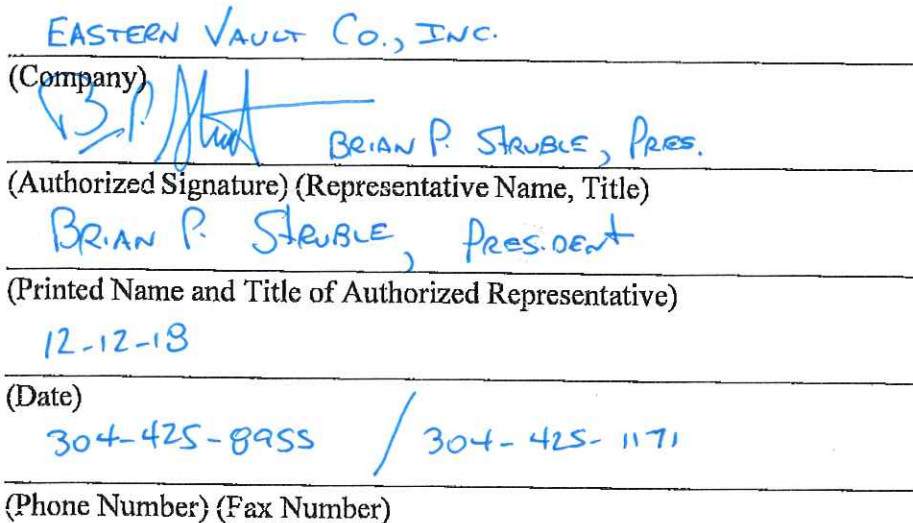 EASTERN VAULT CO., INC.
(Company)
BRIAN P. STRUBLE, PRES.
(Authorized Signature) (Representative Name, Title)
BRIAN P. STRUBLE, PRESIDENT
(Printed Name and Title of Authorized Representative)
12-12-18
(Date)
304-425-8955 / 304-425-1171
(Phone Number) (Fax Number)